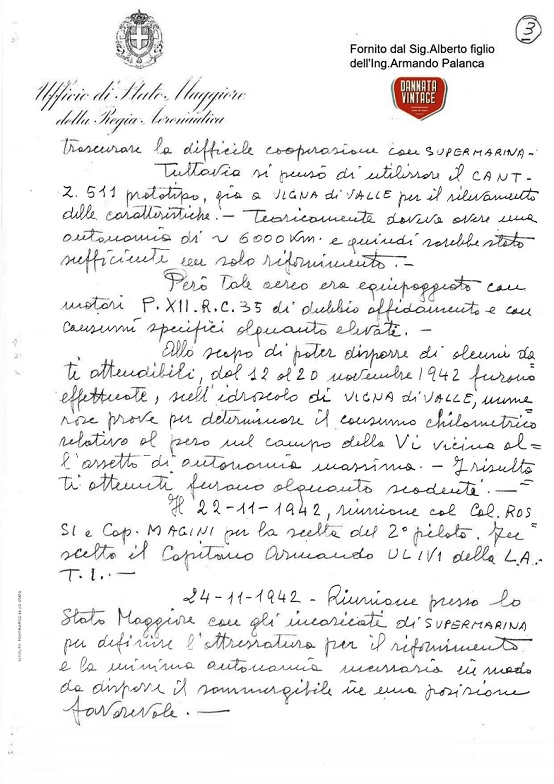 3
Fornito dal Sig.Alberto figlio
dell'Ing.Armando Palanca
DANNATA
VINTAGE
Ufficio di Stato Maggiore
della Regia Aeronautica
trascurare la difficile cooperazione con SUPERMARINA-
Tuttavia si pensò di utilizzare il CANT-
Z. 511 prototipo, già a VIGNA di VALLE per il rilevamento
delle caratteristiche. - Teoricamente doveva avere una
autonomia di ~ 6000 Km. e quindi sarebbe stato
sufficiente un solo rifornimento. -
Però tale aereo era equipaggiato con
motori P. XII. R.C. 35 di dubbio affidamento e con
consumi specifici alquanto elevati. -
Allo scopo di poter disporre di alcuni da
ti attendibili, dal 12 al 20 novembre 1942 furono
effettuate, sull'idroscalo di VIGNA di VALLE, nume
rose prove per determinare il consumo chilometrico
relativo al peso nel campo della Vi vicina al=
l'assetto di autonomia massima. - I risulta
ti ottenuti furono alquanto scadenti. -
Il 22-11-1942, riunione col Col. ROS
SI e Cap. MAGINI per la scelta del 2° pilota. Fu
scelto il Capitano Armando ULIVI della L.A.
T. I. -
24-11-1942 - Riunione presso lo
Stato Maggiore con gli incaricati di SUPERMARINA
per definire l'attrezzatura per il rifornimento
e la minima autonomia necessaria in modo
da disporre il sommergibile in una posizione
favorevole. -